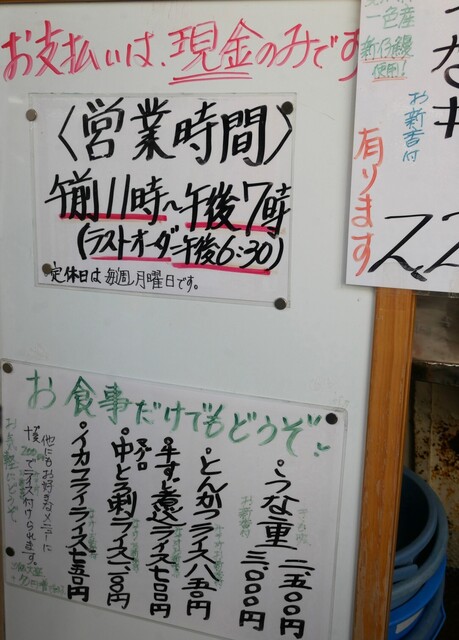 お支払いは、現金のみです
〈営業時間〉
午前11時〜午後7時
(ラストオーダー午後6:30)
定休日は毎週月曜日です。
一色産
新仔鰻
使用!
お新香付
有ります
お食事だけでもどうぞ
・うな重 二、五〇〇円
三、〇〇〇円
お新香付
・とんかつライス 八五〇円
・牛すじ煮込ライス 七〇〇円
・マグロ中とろ刺ライス
・イカフライライス 七五〇円
他にもお好きなメニューに
＋200円でライス付けられます。